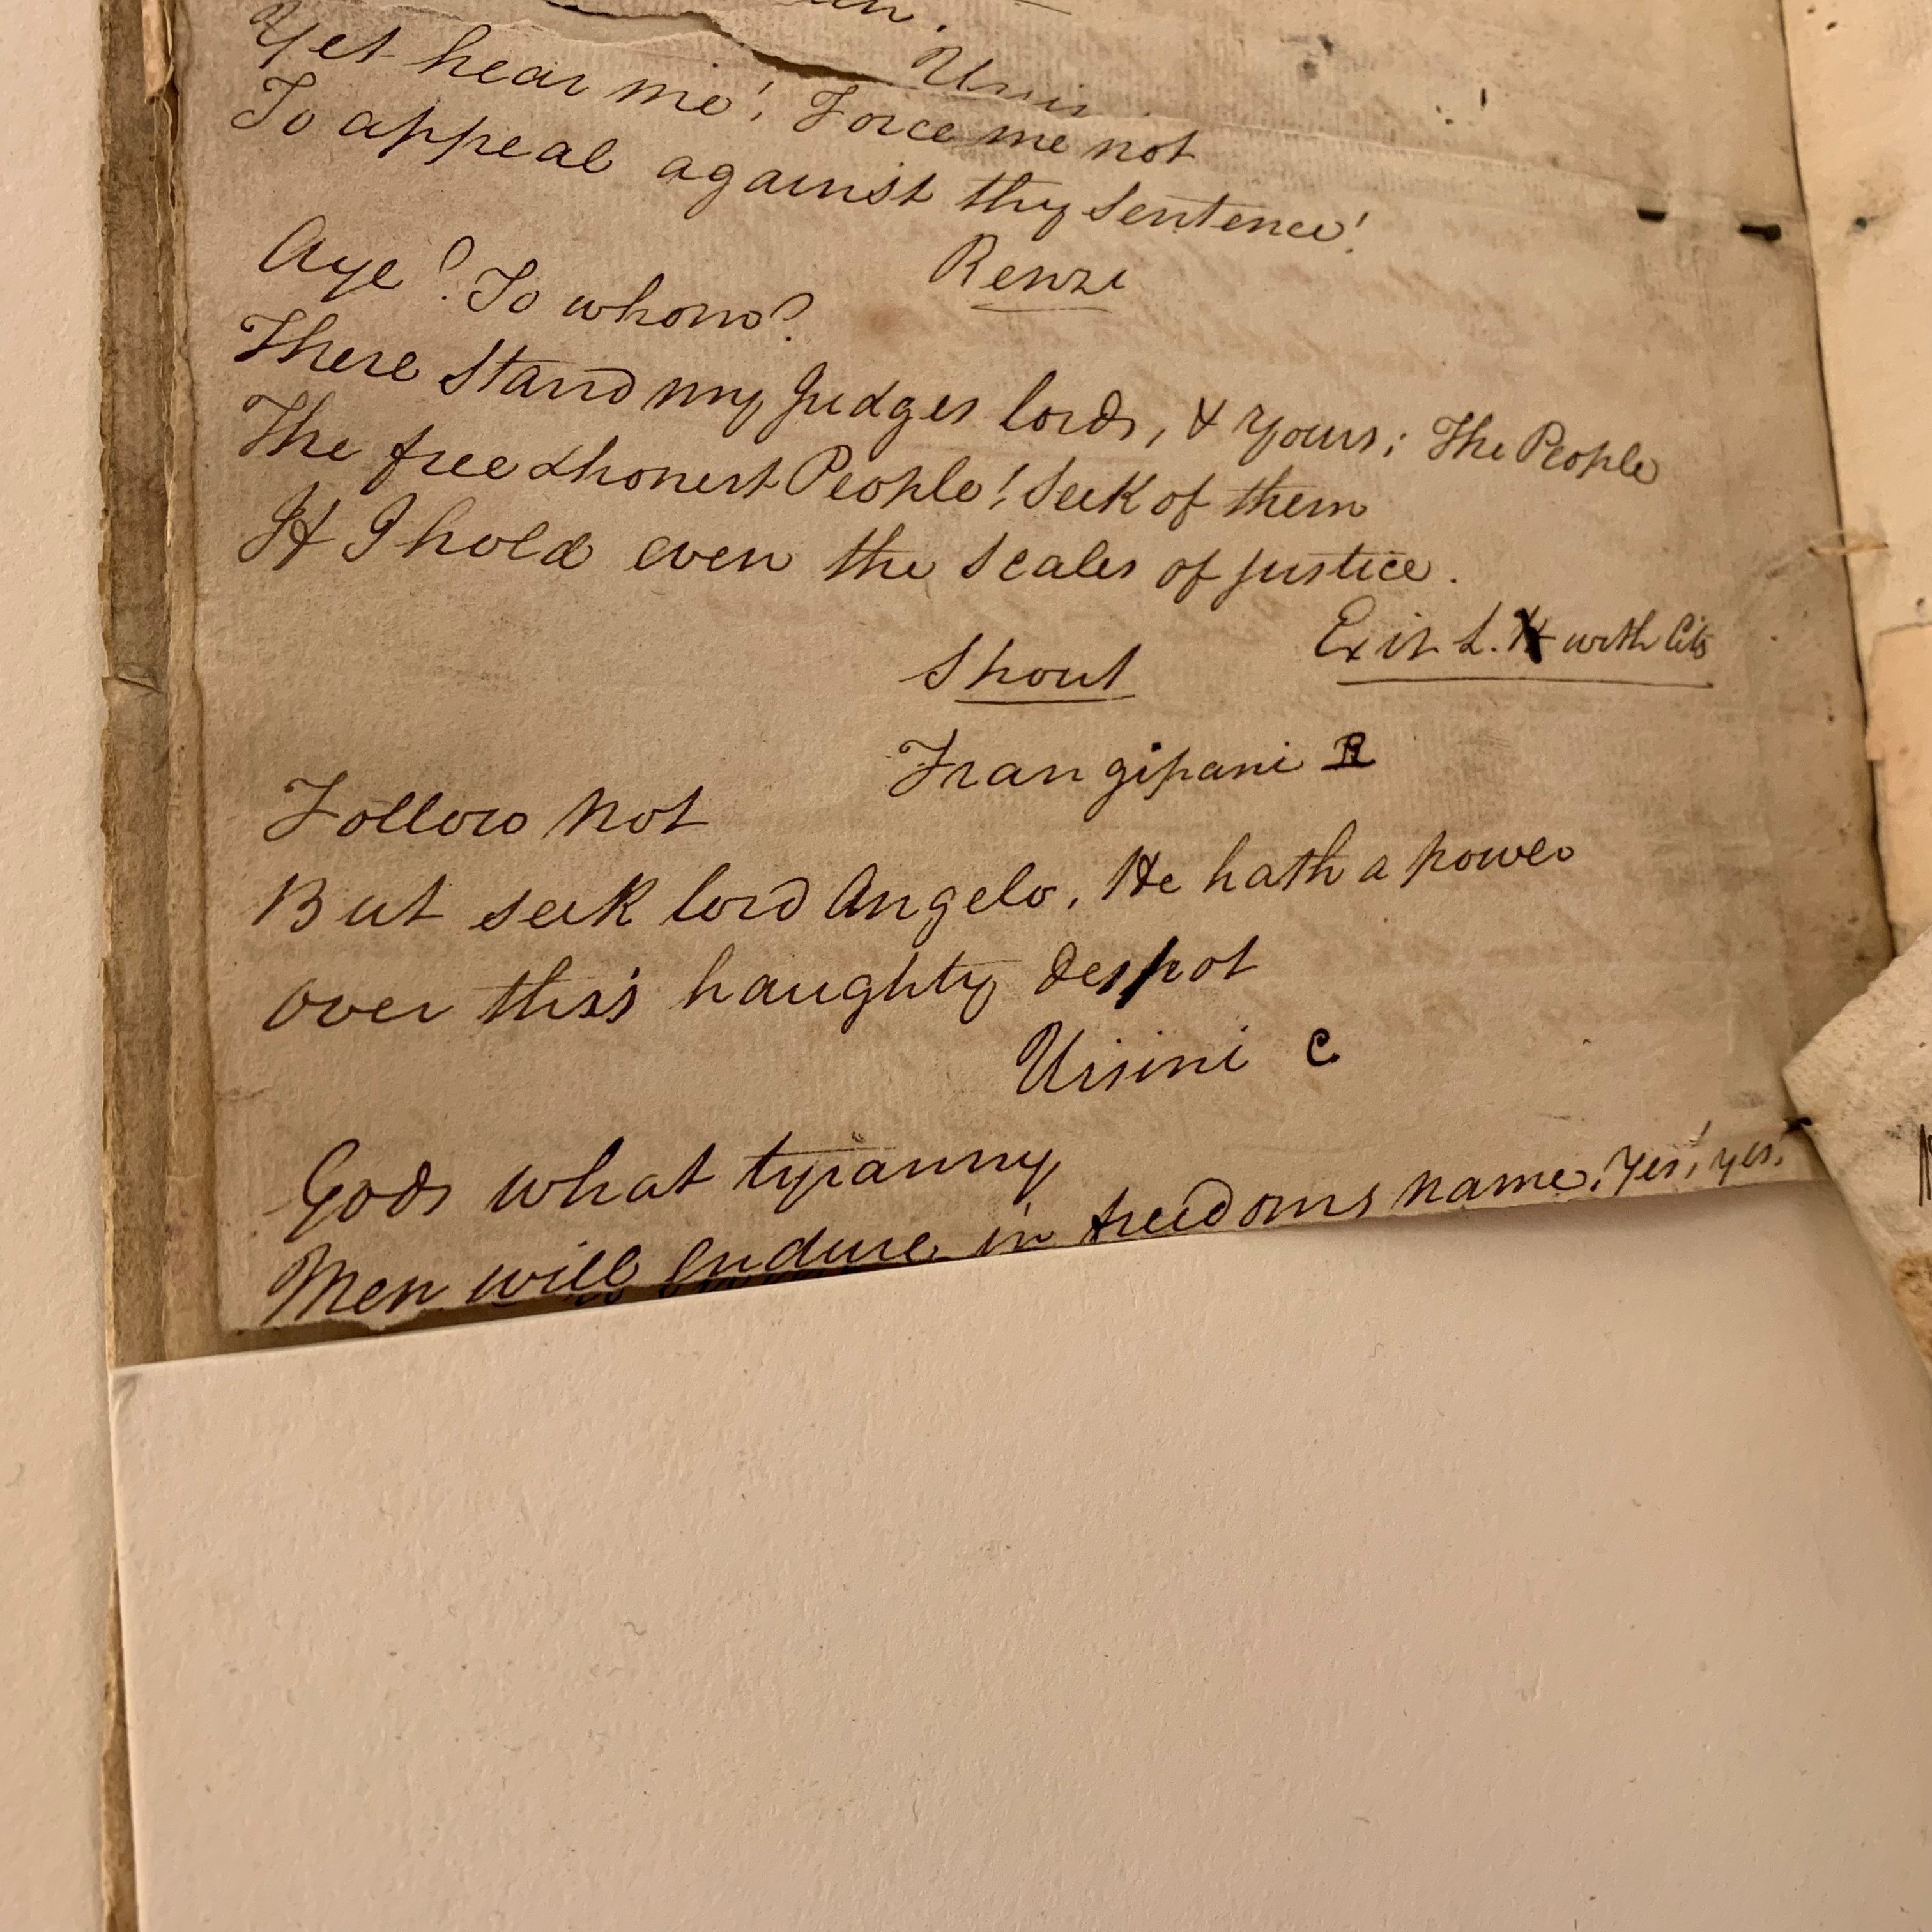 Ursin
Yet hear me! Force me not
To appeal against thy sentence!
Renzi
Aye? To whom?
There stand my Judges lords, & yours; The People
The free & honest People! Seek of them
If I hold even the scales of justice.
Exit L. with Cits
Shout
Frangipani R
Follow not
But seek lord Angelo. He hath a power
over this haughty despot
Ursini C
Gods what tyranny
Men will endure in freedoms name. Yes! yes!